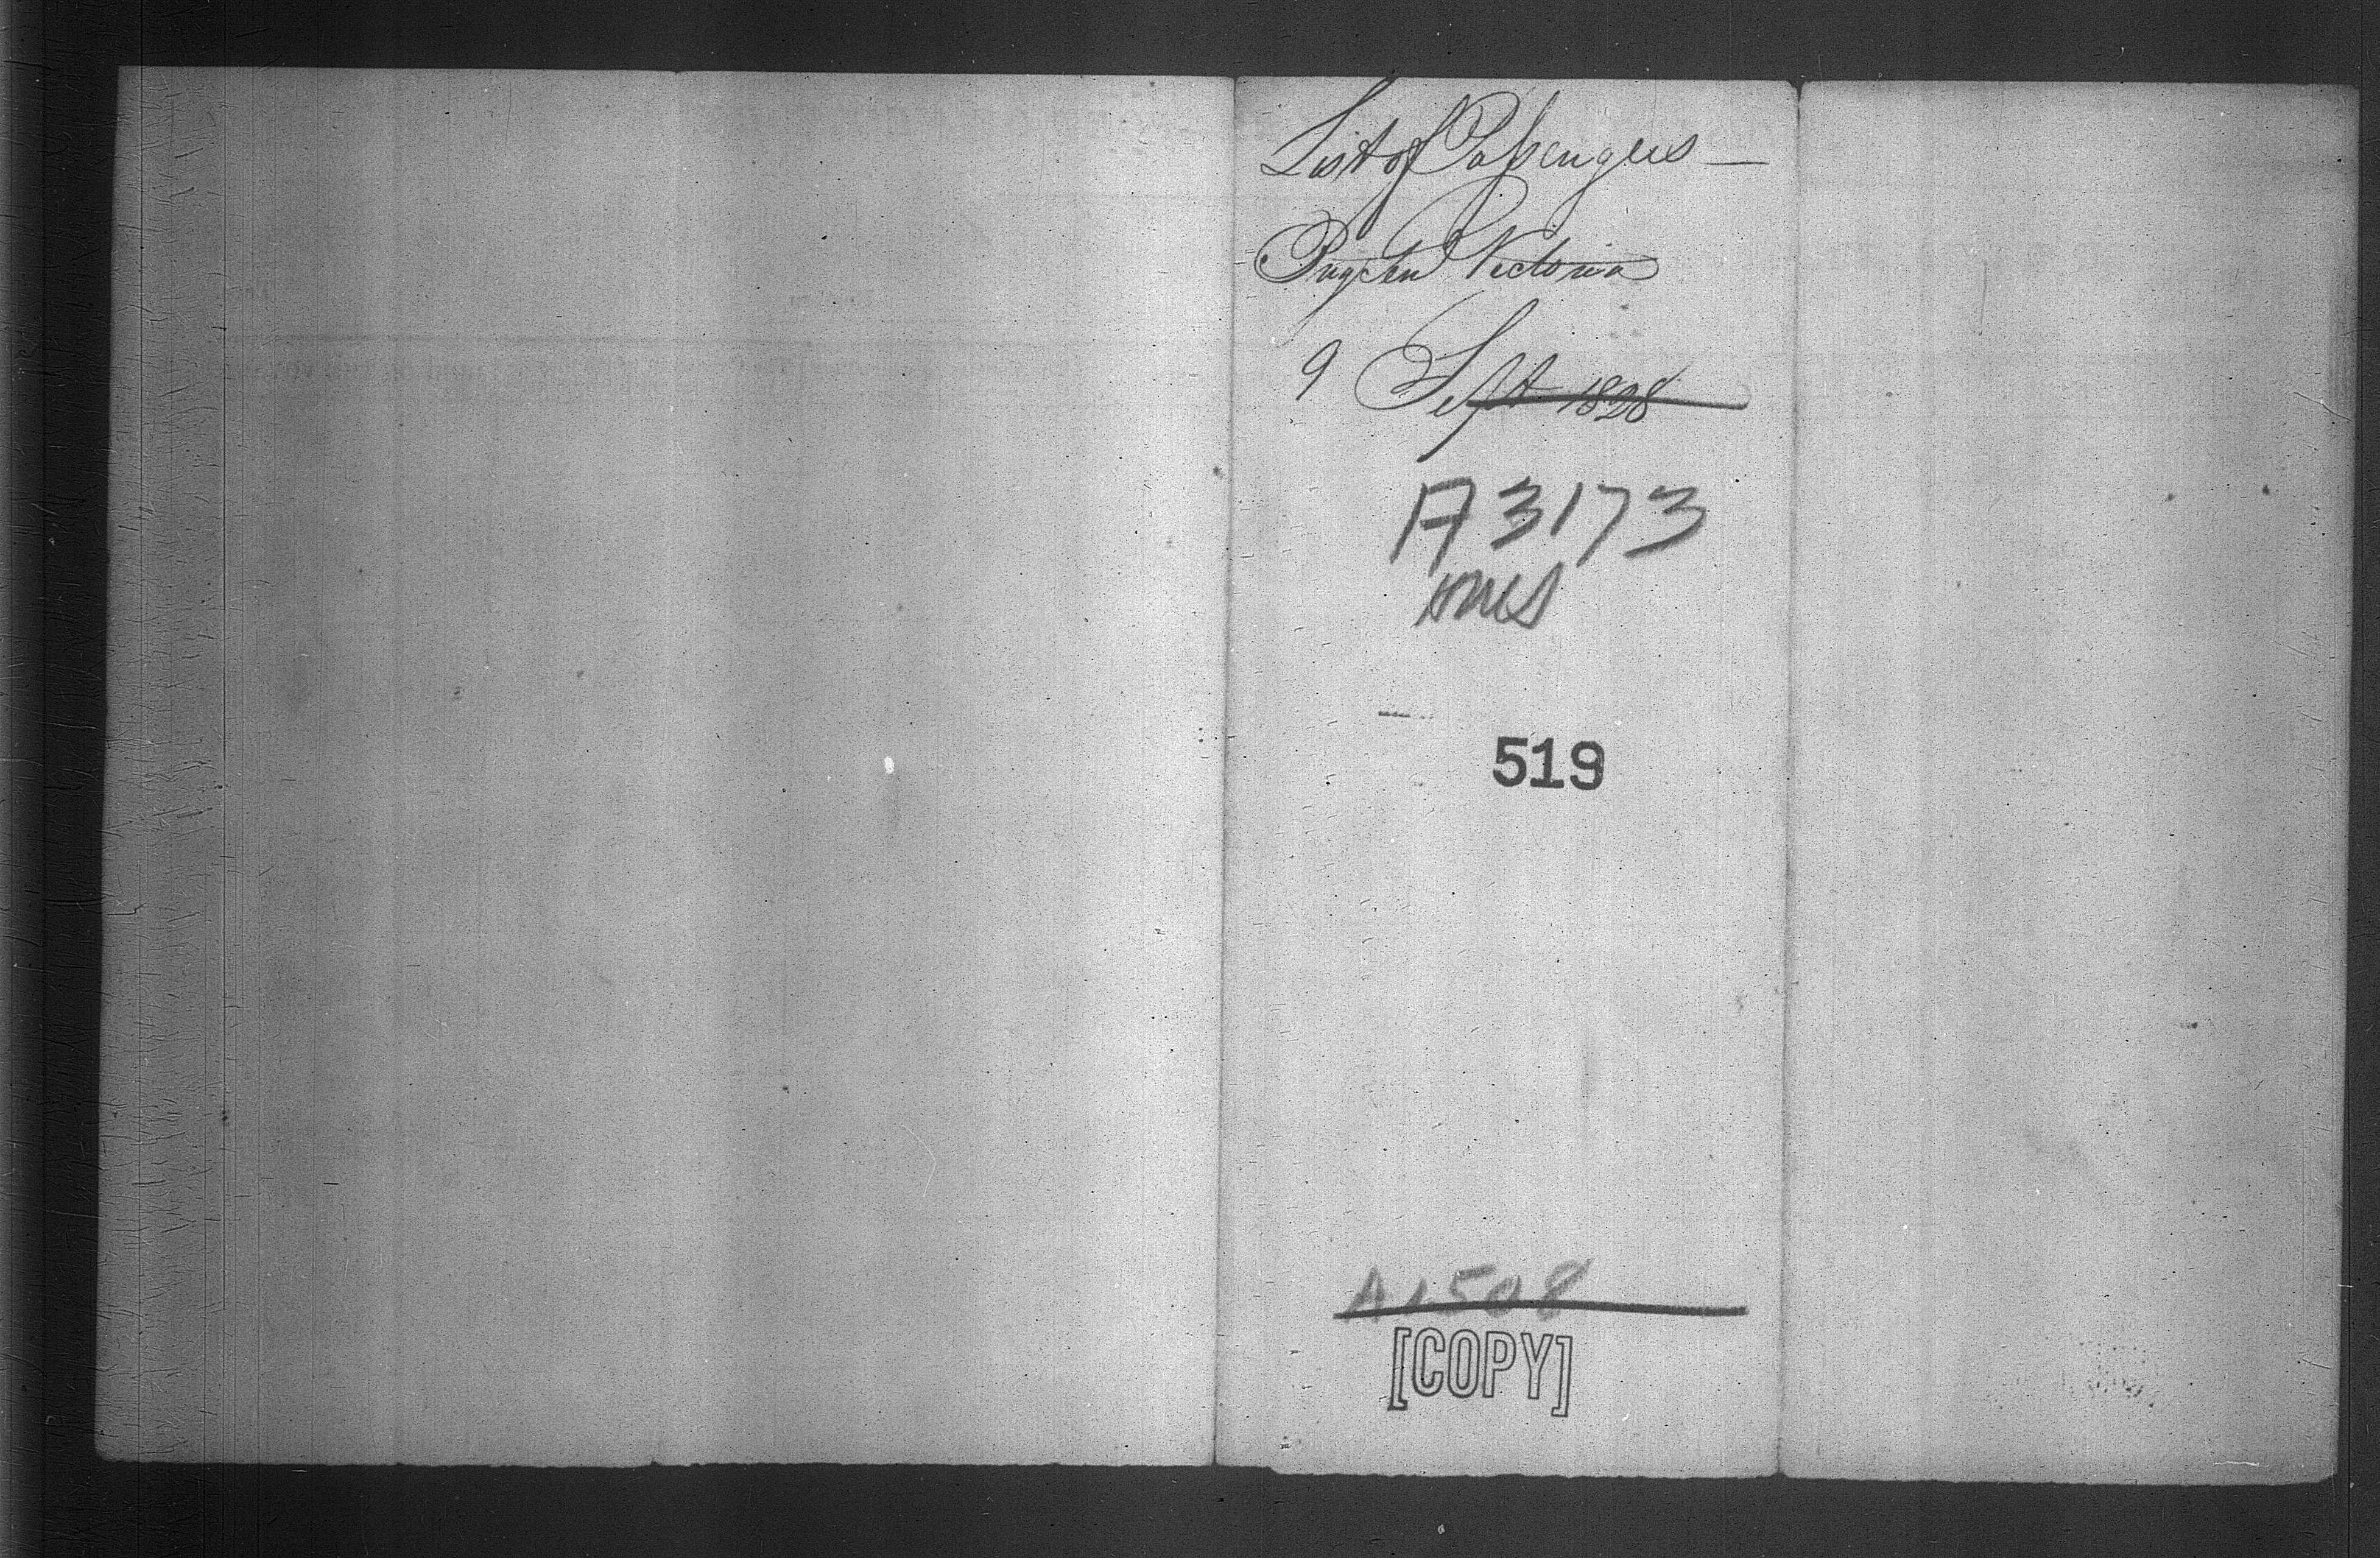 List of Passengers —
Victoria
9 Sept 1828
A 3173
519
A 1508
[COPY]